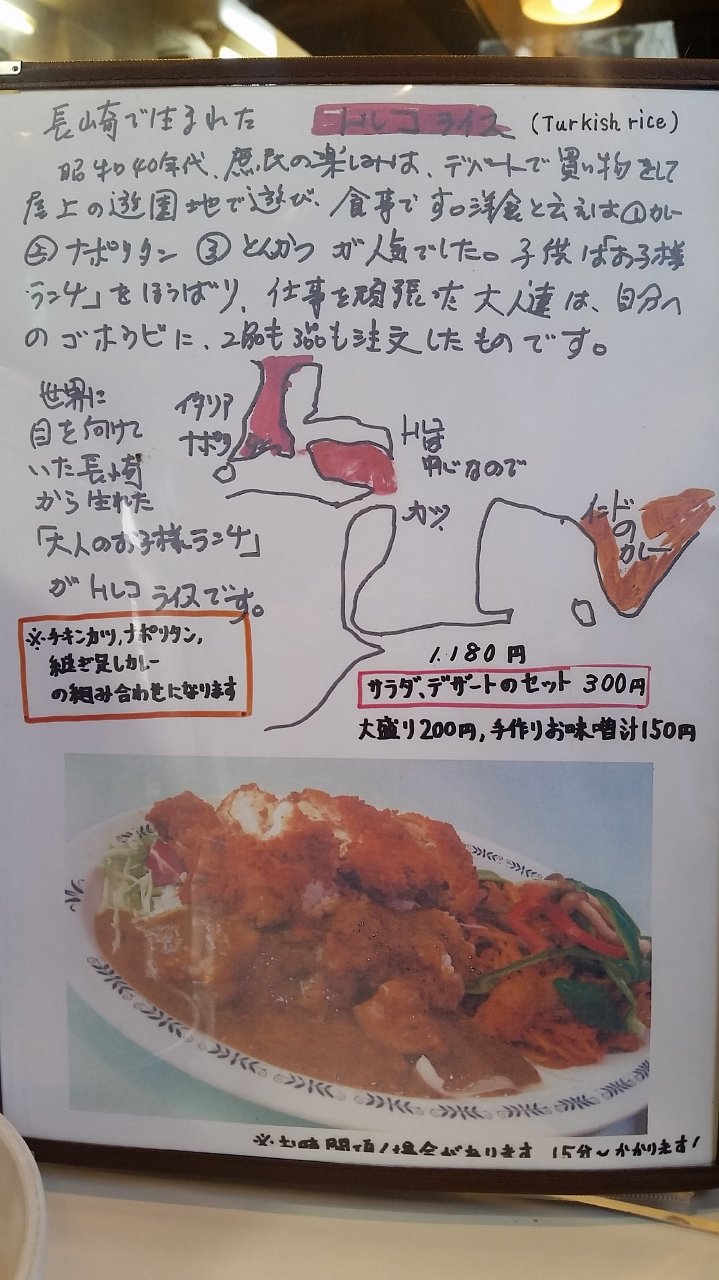 長崎で生まれた トルコライス (Turkish rice)
昭和40年代、庶民の楽しみは、デパートで買い物をして
屋上の遊園地で遊び、食事です。洋食と云えば①カレー
② ナポリタン ③ とんかつ が人気でした。子供は「お子様
ランチ」をほうばり、仕事を頑張った大人達は、自分へ
のゴホウビに、2品も3品も注文したものです。
世界に
目を向けて
いた長崎
から生れた
「大人のお子様ランチ」
がトルコライスです。
イタリア
ナポリ
トルコは
中心なので
カツ
インド
の
カレー
※チキンカツ,ナポリタン,
継ぎ足しカレー
の組み合わせになります
1.180円
サラダ、デザートのセット 300円
大盛り200円,手作りお味噌汁150円
※お時間頂く場合があります 15分〜かかります!